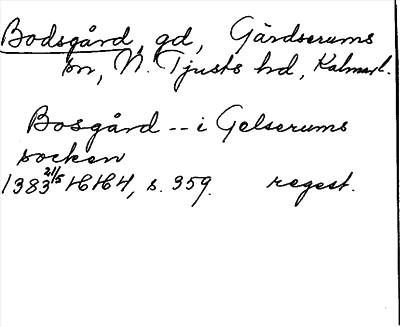 Bodsgård, gd, Gärdserums
sn, N. Tjusts hd, Kalmar l.
Bosgård -- i Gelserums
socken
1383 21/5 HH 4, s. 359. regest.